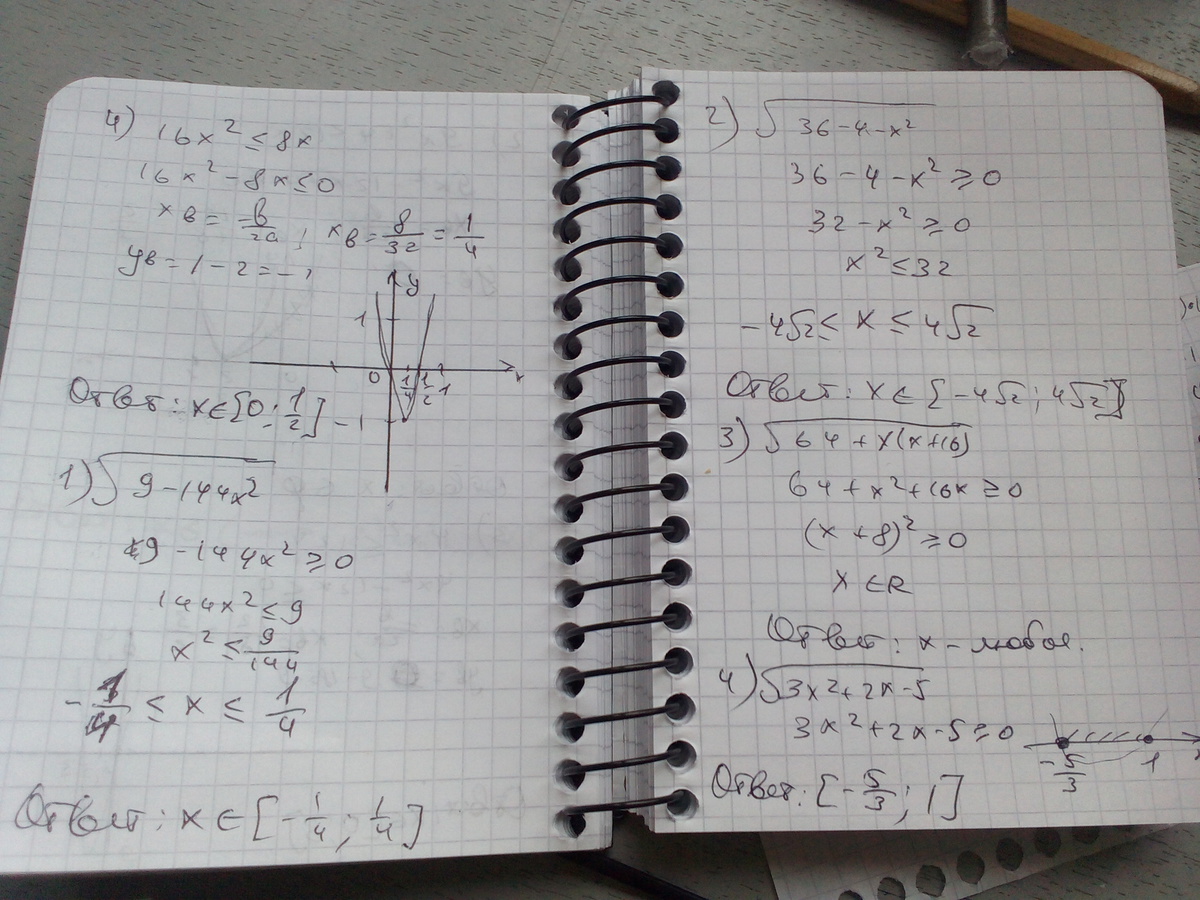 4) 16x² ≤ 8x
16x² - 8x ≤ 0
xв = -b/2a ; xв = 8/32 = 1/4
yв = 1 - 2 = -1
y
1
0 1/4 1/2 1 x
-1
Ответ: x ∈ [0; 1/2]
1) √(9 - 144x²)
9 - 144x² ≥ 0
144x² ≤ 9
x² ≤ 9/144
-1/4 ≤ x ≤ 1/4
Ответ: x ∈ [-1/4; 1/4]
2) √(36 - 4 - x²)
36 - 4 - x² ≥ 0
32 - x² ≥ 0
x² ≤ 32
-4√2 ≤ x ≤ 4√2
Ответ: x ∈ [-4√2; 4√2]
3) √(64 + x(x+16))
64 + x² + 16x ≥ 0
(x + 8)² ≥ 0
x ∈ R
Ответ: x - любое.
4) √(3x² + 2x - 5)
3x² + 2x - 5 ≥ 0
-5/3 1
Ответ: [-5/3; 1]